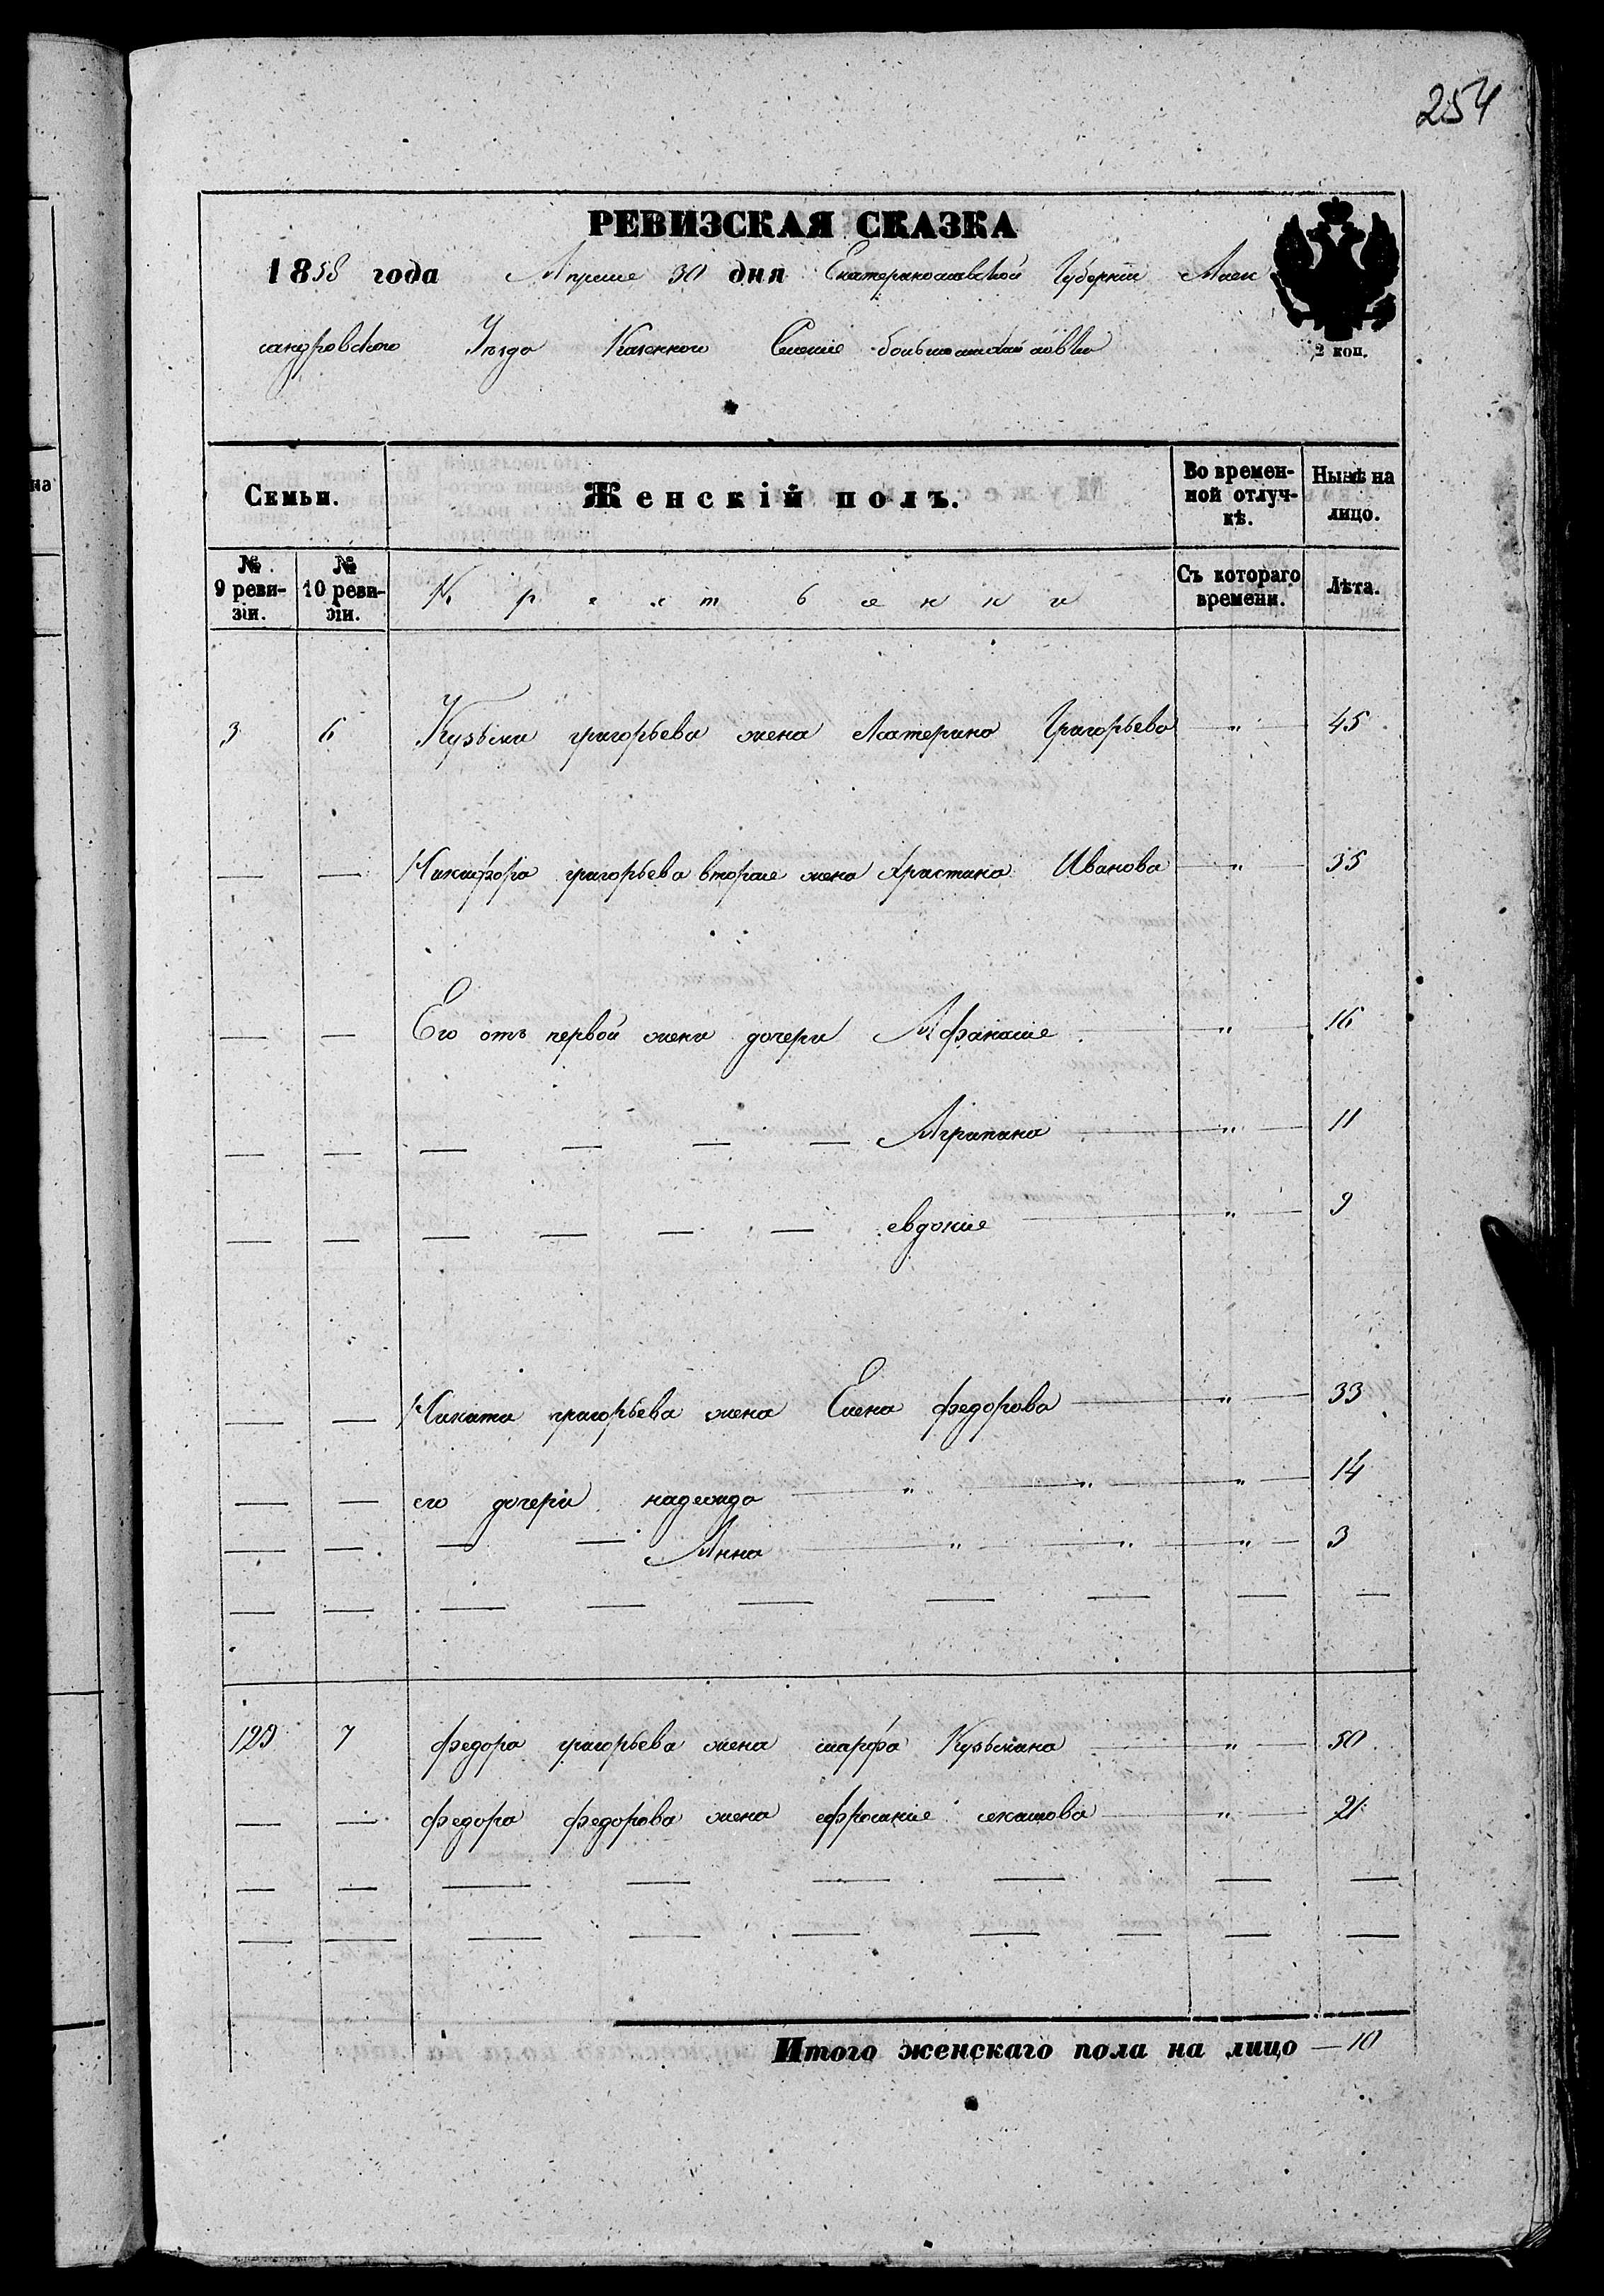 254
РЕВИЗСКАЯ СКАЗКА
1858 года Апреля 30 дня Екатеринославской Губернии Алек
сандровского Уезда Казенного Селения
2 коп.
Семьи. Женскій полъ. Во времен-ной отлуч-кѣ. Нынѣ на лицо.
№ 9 реви-зіи. № 10 реви-зіи. Крестьянки Съ котораго времени. Лѣта.
3 6 Кузьми григорьева жена Катерина Григорьева " 45
— — Никифора григорьева вторая жена Христина Иванова " 35
— — Его отъ первой жени дочери Афанасия " 16
— — — — — — Агрипина " 11
— — — — — — евдокия " 9
— — Никити григорьева жена Елена федорова " 33
— — его дочери надежда " " " 14
— — — — Анна " " " 3
— — — — — — — — —
129 7 федора григорьева жена марфа Кузьмина " 50
— — федора федорова жена ефросиния " 21
— — — — — — — —
— — — — — — — — —
Итого женскаго пола на лицо — 10
на